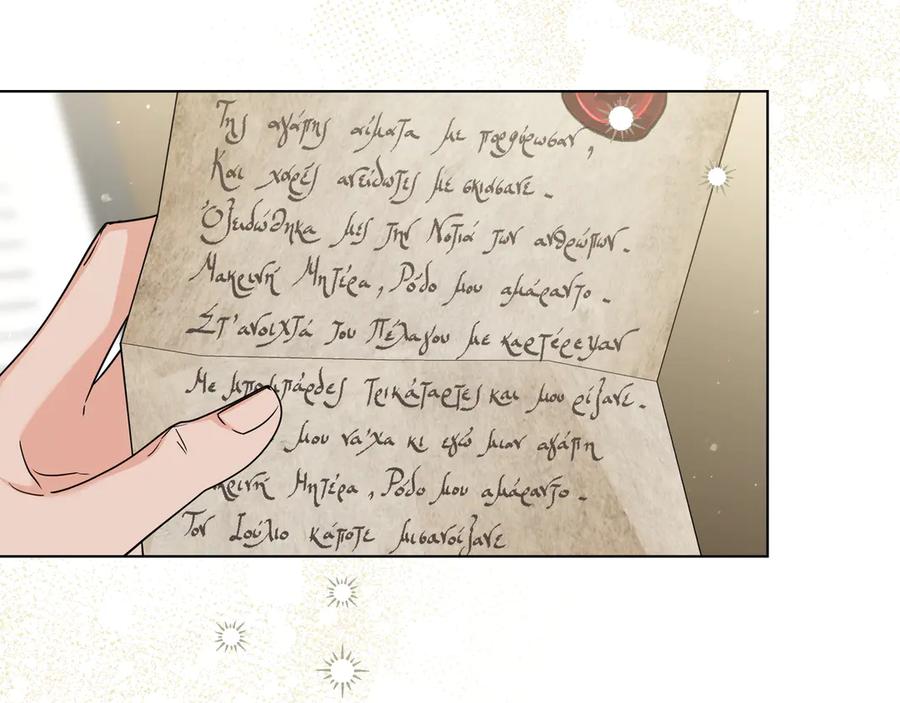 Της αγάπης αίματα με πορφύρωσαν,
Και χαρές ανείδωτες με σκιάσανε.
Ὀξειδώθηκα μες την Νοτιά των ανθρώπων.
Μακρινή Μητέρα, Ρόδο μου αμάραντο.
Στ'ανοιχτά του Πέλαγου με καρτέρεψαν
Με μπομπάρδες Τρικάταρτες και μου ρίξανε.
μου να'χα κι εγώ μιαν αγάπη
κρινή Μητέρα, Ρόδο μου αμάραντο.
Τον Ιούλιο κάποτε μισανοίξανε